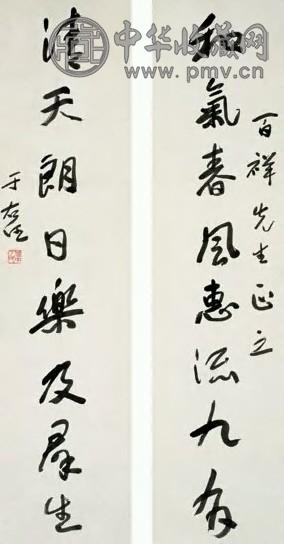 中华收藏网
www.pmv.cn
百祥先生正之
和氣春風惠流九有
清天朗日樂及羣生
于右任